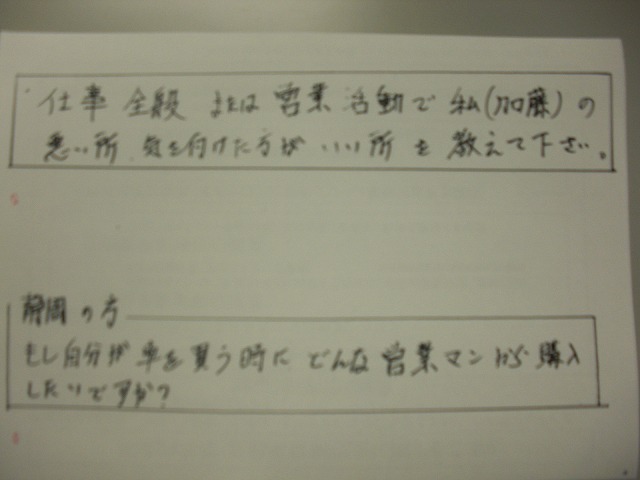 仕事 全般 または 営業 活動で 私(加藤)の
悪い所、気を付けた方が いい所 を 教えて下さい。
静岡の方
もし自分が 車を買う時に どんな 営業マンから 購入
したいですか?